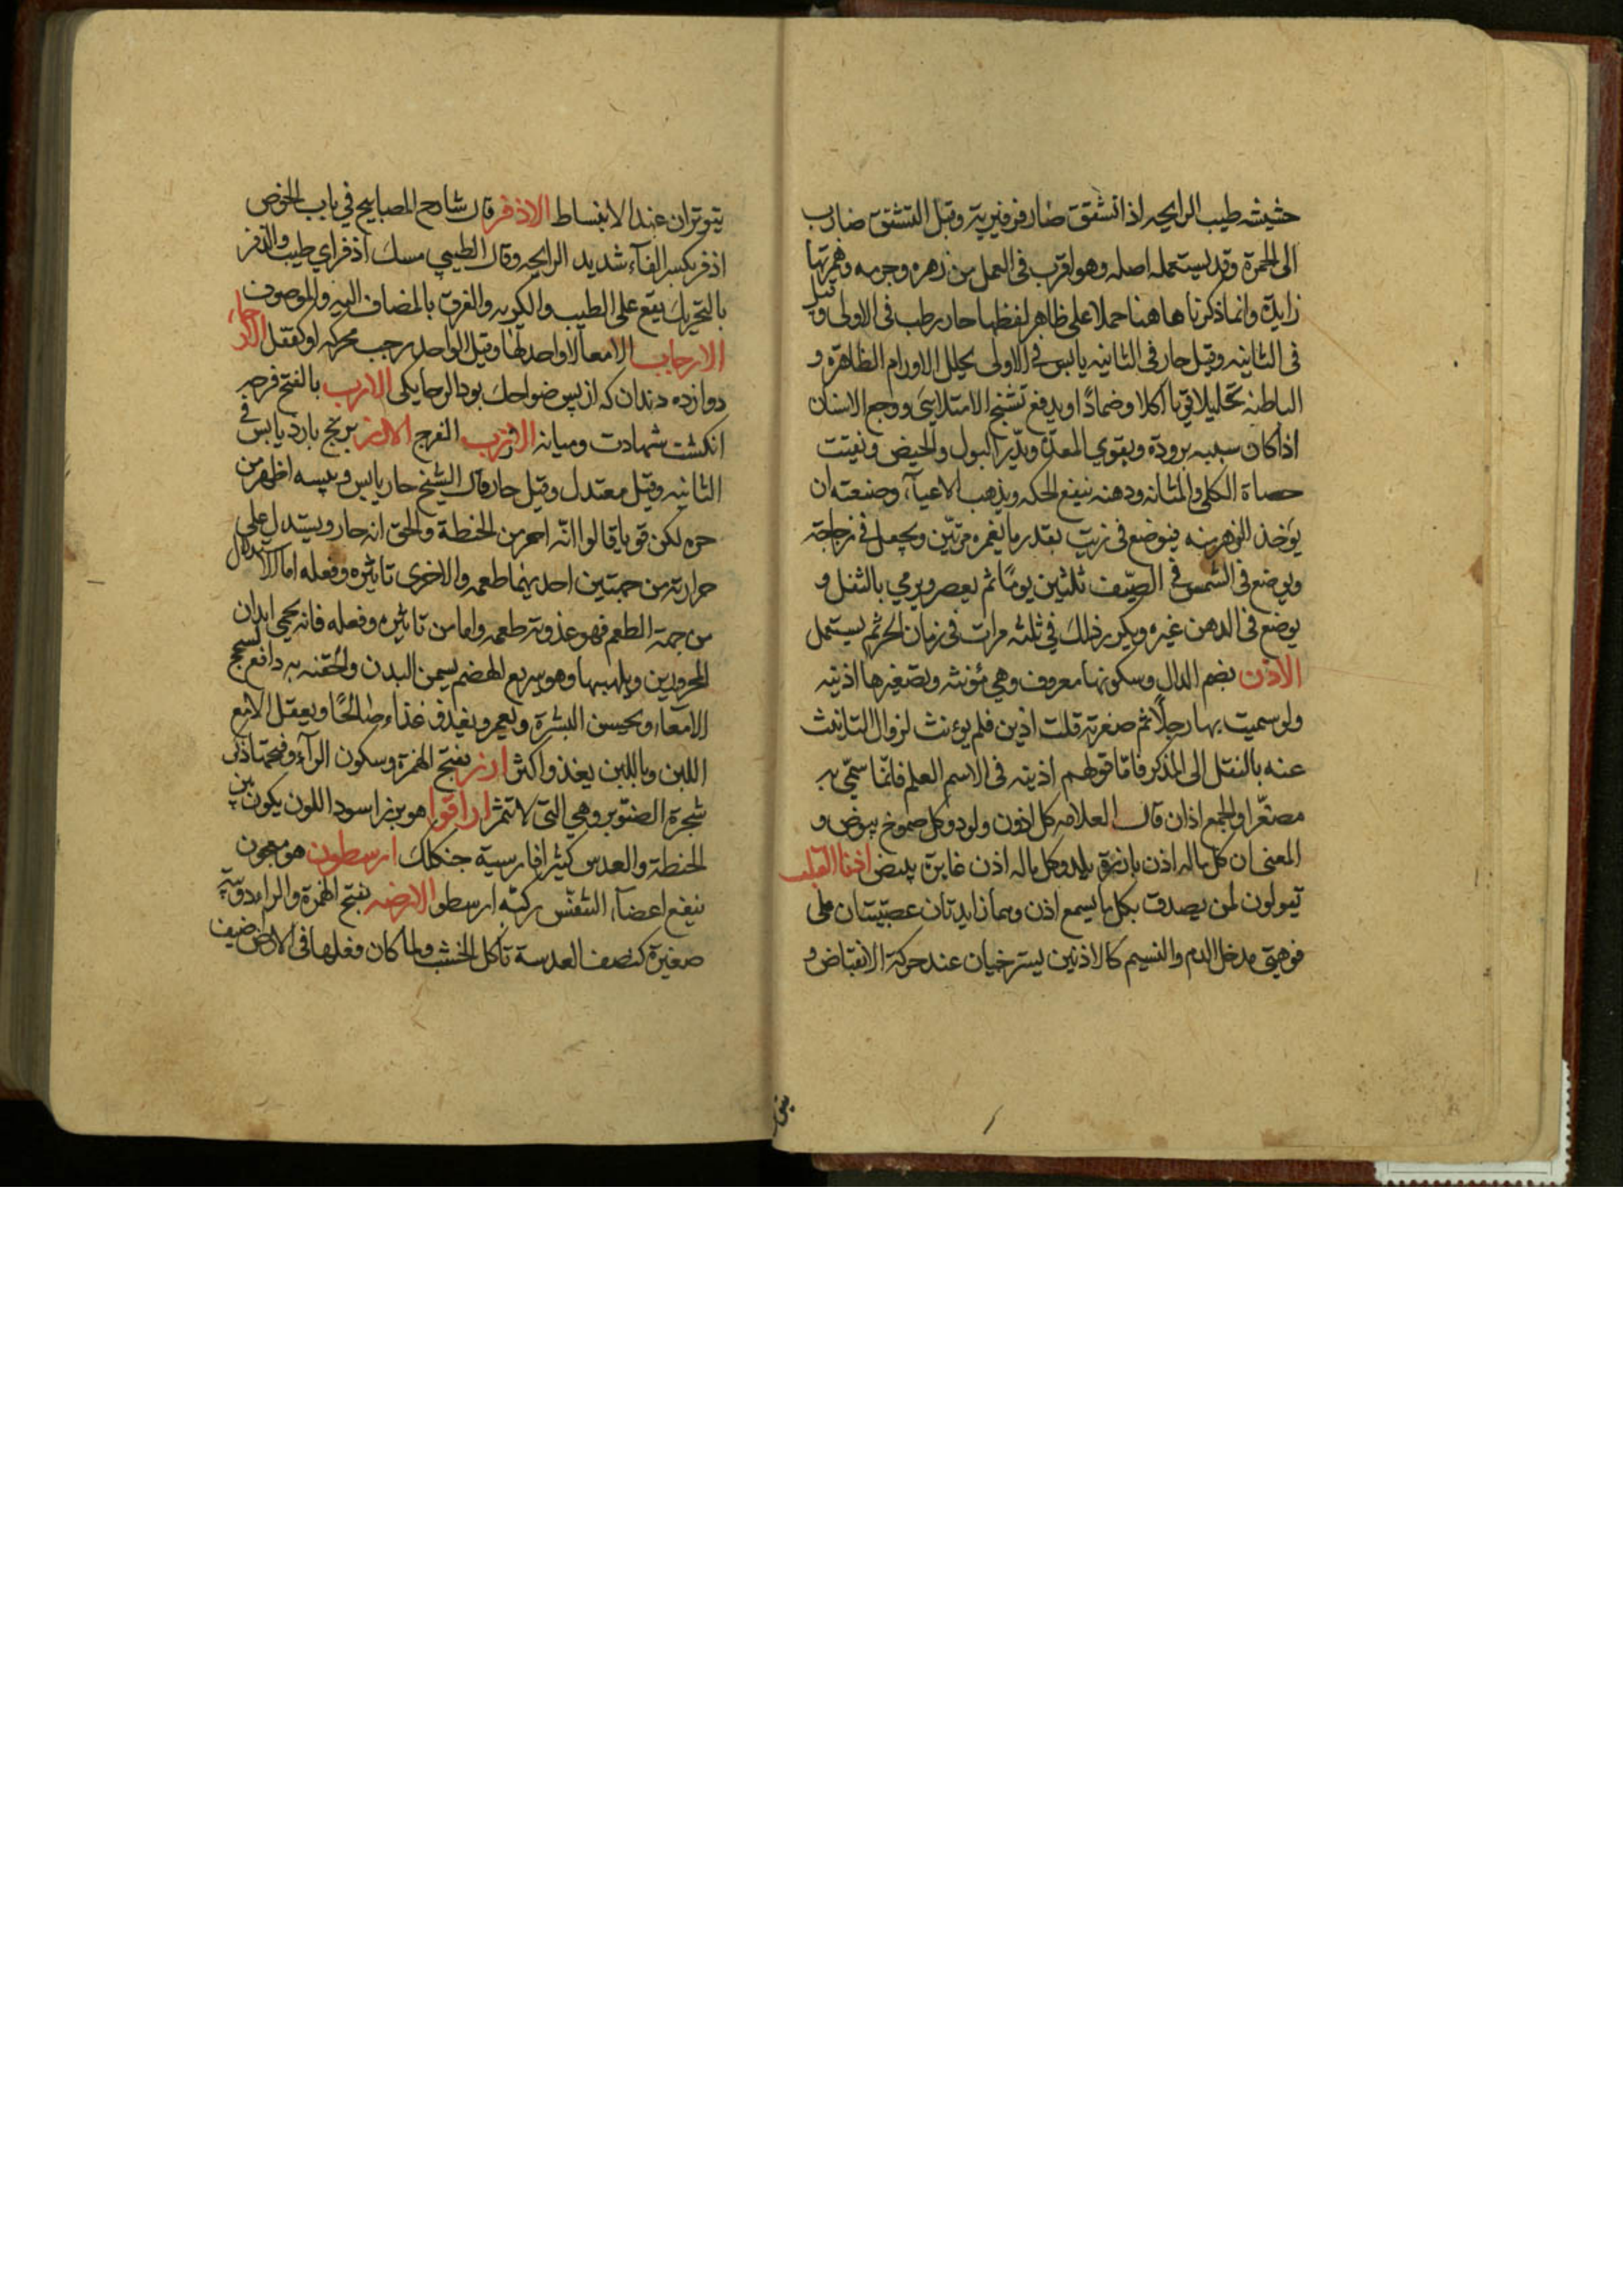 حشيشه طيب الرايحه اذا تشقق صار فرفيرية وقبل التشقق ضارب
الى الحمرة وقد يستعمله اصله وهو اقرب فى العمل من زهره وجرمه وهمزتها
زايدة وانما ذكرنا هاهنا حملا على ظاهر لفظها حار رطب فى الاولى وقيل
فى الثانيه وقيل حار فى الثانيه يابس فى الاولى يحلل الاورام الظاهرة و
الباطنه تحليلا قويا اكلا وضمادًا ويدفع تشنج الامتلائى ووجع الاسنان
اذا كان سببه برودة ويقوي المعدة ويدر البول والحيض ويفتت
حصاة الكلى والمثانه ودهنه ينفع الحكه ويذهب الاعيآء وصنعته ان
يؤخذ الزهر منه فيوضع فى زيت بقدر ما يغمره مرتين ويجعل فى زجاجة
ويوضع فى الشمس فى الصيف ثلثين يومًا ثم يعصر ويرمي بالثفل و
يوضع فى الدهن غيره ويكرر ذلك فى ثلثه مرات فى زمان الحر ثم يستعمل
الاذن بضم الدال وسكونها معروف وهي مؤنثه وتصغيرها اذينه
ولو سميت بها رجلًا ثم صغرته قلت اذين فلم يؤنث لزوال التانيث
عنه بالنقل الى المذكر فامّا قولهم اذينه فى الاسم العلم فانّما سمّي به
مصغّرا والجمع اذان قال العلامه كل اذون ولود وكل صموخ بيوض و
المعنى ان كل ماله اذن بارزة يلد وكل ماله اذن غايرة يبيض اذنا القلب
تقولون لمن يصدق بكل ما يسمع اذن وهما زايدتان عصبيتان على
فوهتى مدخل الدم والنسيم كالاذنين يسترخيان عند حركة الانقباض و
يتوتران عند الانبساط الاذفر قال شارح المصابيح في باب الحوض
اذفر بكسر الفآء شديد الرايحه وقال الطيبي مسك اذفر اي طيب والذفر
بالتحريك يقع على الطيب والكريه والفرق بالمضاف اليه والموصوف
الارجاب الامعآ لا واحد لها وقيل الواحد رجب محركه او كقفل الارحاء
دوازده دندان كه از پس ضواحك بود الرحا يكى الارب بالفتح فرجه
انكشت شهادت وميانه الارب الفرج الارز برنج بارد يابس فى
الثانيه وقيل معتدل وقيل حار قال الشيخ حار يابس ويبسه اظهر من
حره لكن قوما قالوا انّه احر من الحنطة والحق انه حار ويستدل على
حرارته من جهتين احديهما طعمه والاخرى تاثيره وفعله اما الاستدلال
من جهة الطعم فهو عذوبة طعمه واما من تاثيره وفعله فانه يحمي ابدان
المحرورين ويلهبها وهو سريع الهضم يسمن البدن والحقنه به دافع لسحج
الامعآء ويحسن البشرة ويعمر ويغذى غذاء صالحًا ويعقل الامع
اللبن وباللبن يغذو اكثر ارز بفتح الهمزة وسكون الرآء وفتحها ذكر
شجرة الصنوبر وهي التى لا تثمر اراقوا هو بزر اسود اللون يكون بين
الحنطة والعدس كثيرا فارسية جنكلك ارسطون هو معجون
ينفع اعضآء التنفّس ركّبه ارسطو الارضه بفتح الهمزة والراء دويبة
صغيرة كنصف العدسة تاكل الخشب ولما كان فعلها فى الارض ضيف